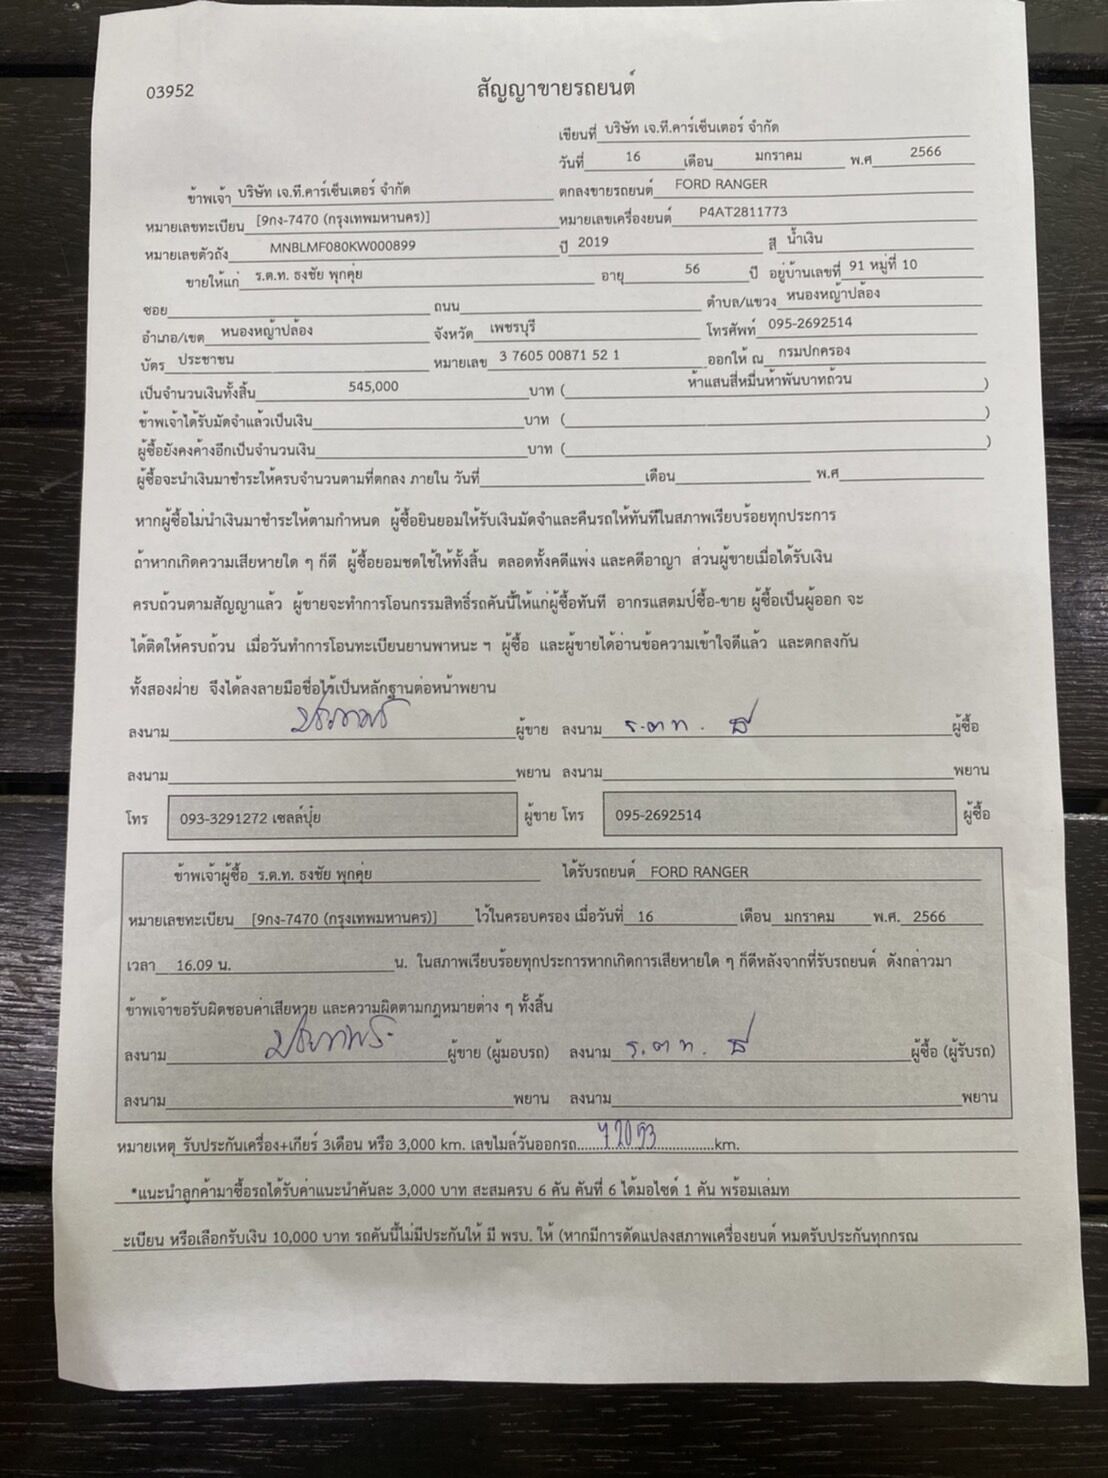 03952
สัญญาขายรถยนต์
เขียนที่ บริษัท เจ.ที.คาร์เซ็นเตอร์ จำกัด
วันที่ 16 เดือน มกราคม พ.ศ 2566
ข้าพเจ้า บริษัท เจ.ที.คาร์เซ็นเตอร์ จำกัด ตกลงขายรถยนต์ FORD RANGER
หมายเลขทะเบียน [9กง-7470 (กรุงเทพมหานคร)] หมายเลขเครื่องยนต์ P4AT2811773
หมายเลขตัวถัง MNBLMF080KW000899 ปี 2019 สี น้ำเงิน
ขายให้แก่ ร.ต.ท. ธงชัย พุกคุ่ย อายุ 56 ปี อยู่บ้านเลขที่ 91 หมู่ที่ 10
ซอย ถนน ตำบล/แขวง หนองหญ้าปล้อง
อำเภอ/เขต หนองหญ้าปล้อง จังหวัด เพชรบุรี โทรศัพท์ 095-2692514
บัตร ประชาชน หมายเลข 3 7605 00871 52 1 ออกให้ ณ กรมปกครอง
เป็นจำนวนเงินทั้งสิ้น 545,000 บาท ( ห้าแสนสี่หมื่นห้าพันบาทถ้วน )
ข้าพเจ้าได้รับมัดจำแล้วเป็นเงิน บาท ( )
ผู้ซื้อยังคงค้างอีกเป็นจำนวนเงิน บาท ( )
ผู้ซื้อจะนำเงินมาชำระให้ครบจำนวนตามที่ตกลง ภายใน วันที่ เดือน พ.ศ
หากผู้ซื้อไม่นำเงินมาชำระให้ตามกำหนด ผู้ซื้อยินยอมให้รับเงินมัดจำและคืนรถให้ทันทีในสภาพเรียบร้อยทุกประการ
ถ้าหากเกิดความเสียหายใด ๆ ก็ดี ผู้ซื้อยอมชดใช้ให้ทั้งสิ้น ตลอดทั้งคดีแพ่ง และคดีอาญา ส่วนผู้ขายเมื่อได้รับเงิน
ครบถ้วนตามสัญญาแล้ว ผู้ขายจะทำการโอนกรรมสิทธิ์รถคันนี้ให้แก่ผู้ซื้อทันที อากรแสตมป์ซื้อ-ขาย ผู้ซื้อเป็นผู้ออก จะ
ได้ติดให้ครบถ้วน เมื่อวันทำการโอนทะเบียนยานพาหนะ ฯ ผู้ซื้อ และผู้ขายได้อ่านข้อความเข้าใจดีแล้ว และตกลงกัน
ทั้งสองฝ่าย จึงได้ลงลายมือชื่อไว้เป็นหลักฐานต่อหน้าพยาน
ลงนาม ผู้ขาย ลงนาม ร.ต.ท. ผู้ซื้อ
ลงนาม พยาน ลงนาม พยาน
โทร 093-3291272 เซลล์ปุ๋ย ผู้ขาย โทร 095-2692514 ผู้ซื้อ
ข้าพเจ้าผู้ซื้อ ร.ต.ท. ธงชัย พุกคุ่ย ได้รับรถยนต์ FORD RANGER
หมายเลขทะเบียน [9กง-7470 (กรุงเทพมหานคร)] ไว้ในครอบครอง เมื่อวันที่ 16 เดือน มกราคม พ.ศ. 2566
เวลา 16.09 น. น. ในสภาพเรียบร้อยทุกประการหากเกิดการเสียหายใด ๆ ก็ดีหลังจากที่รับรถยนต์ ดังกล่าวมา
ข้าพเจ้าขอรับผิดชอบค่าเสียหาย และความผิดตามกฎหมายต่าง ๆ ทั้งสิ้น
ลงนาม ผู้ขาย (ผู้มอบรถ) ลงนาม ร.ต.ท. ผู้ซื้อ (ผู้รับรถ)
ลงนาม พยาน ลงนาม พยาน
หมายเหตุ รับประกันเครื่อง+เกียร์ 3เดือน หรือ 3,000 km. เลขไมล์วันออกรถ...................km.
*แนะนำลูกค้ามาซื้อรถได้รับค่าแนะนำคันละ 3,000 บาท สะสมครบ 6 คัน คันที่ 6 ได้มอไซด์ 1 คัน พร้อมเล่มท
ะเบียน หรือเลือกรับเงิน 10,000 บาท รถคันนี้ไม่มีประกันให้ มี พรบ. ให้ (หากมีการดัดแปลงสภาพเครื่องยนต์ หมดรับประกันทุกกรณ